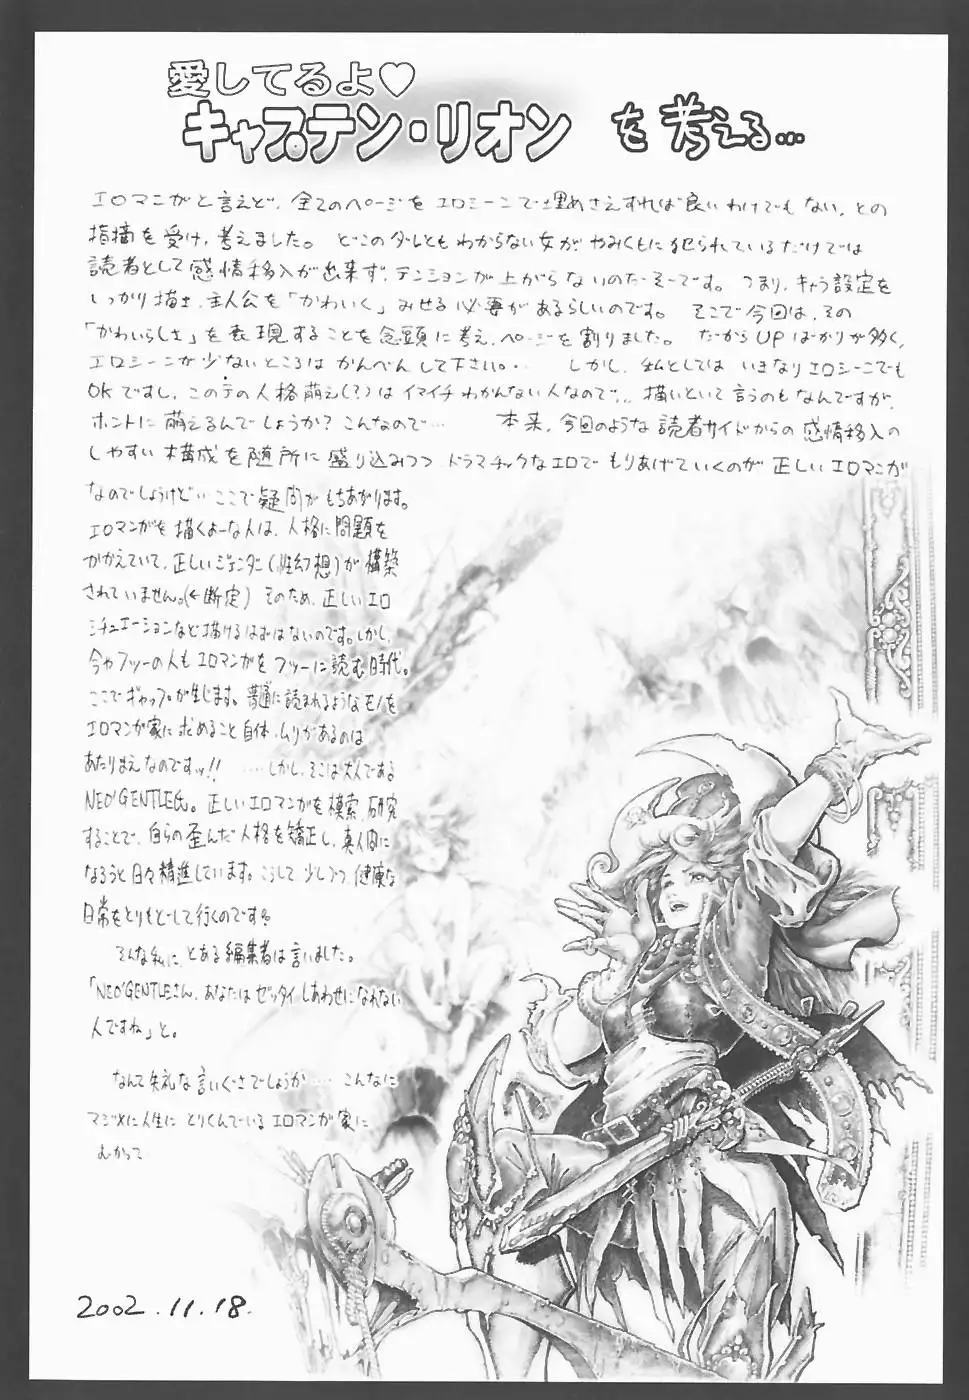 愛してるよ♡
キャプテン・リオン を考える…
エロマンガと言えど、全てのページをエロシーンで埋めさえすれば良いわけでもない、との
指摘を受け、考えました。 どこのダレともわからない女がやみくもに犯られているだけでは
読者として感情移入が出来ず、テンションが上がらないのだそーです。 つまり、キャラ設定を
しっかり描き、主人公を「かわいく」みせる必要があるらしいのです。 そこで今回は、その
「かわいらしさ」を表現することを念頭に考え、ページを割りました。 だからUPばかりが多く、
エロシーンが少ないところはかんべんして下さい。… しかし、私としてはいきなりエロシーンでも
OKですし、このテの人格萌え(?)はイマイチわかんない人なので… 描いといて言うのもなんですが、
ホントに萌えるんでしょうか?こんなので… 本来、今回のような読者サイドからの感情移入の
しやすい構成を随所に盛り込みつつ ドラマチックなエロでもりあげていくのが正しいエロマンガ
なのでしょうけど… ここで疑問がもちあがります。
エロマンガを描くよーな人は、人格に問題を
かかえていて、正しいジェンダー(性幻想)が構築
されていません。(←断定) そのため、正しいエロ
シチュエーションなど描けるはずはないのです。しかし、
今やフツーの人もエロマンガをフツーに読む時代。
ここでギャップが生じます。普通に読まれるようなモノを
エロマンガ家に求めること自体、ムリがあるのは
あたりまえなのですッ!! ……しかし、そこは大人である
NEO'GENTLE氏。正しいエロマンガを模索、研究
することで、自らの歪んだ人格を矯正し、真人間に
なろうと日々精進しています。こうして少しづつ健康な
日常をとりもどして行くのです。
そんな私に、とある編集者は言いました。
「NEO'GENTLEさん、あなたはゼッタイしあわせになれない
人ですね」と。
なんて失礼な言いぐさでしょうか…… こんなに
マジメに人生にとりくんでいるエロマンガ家に
むかって
2002.11.18.